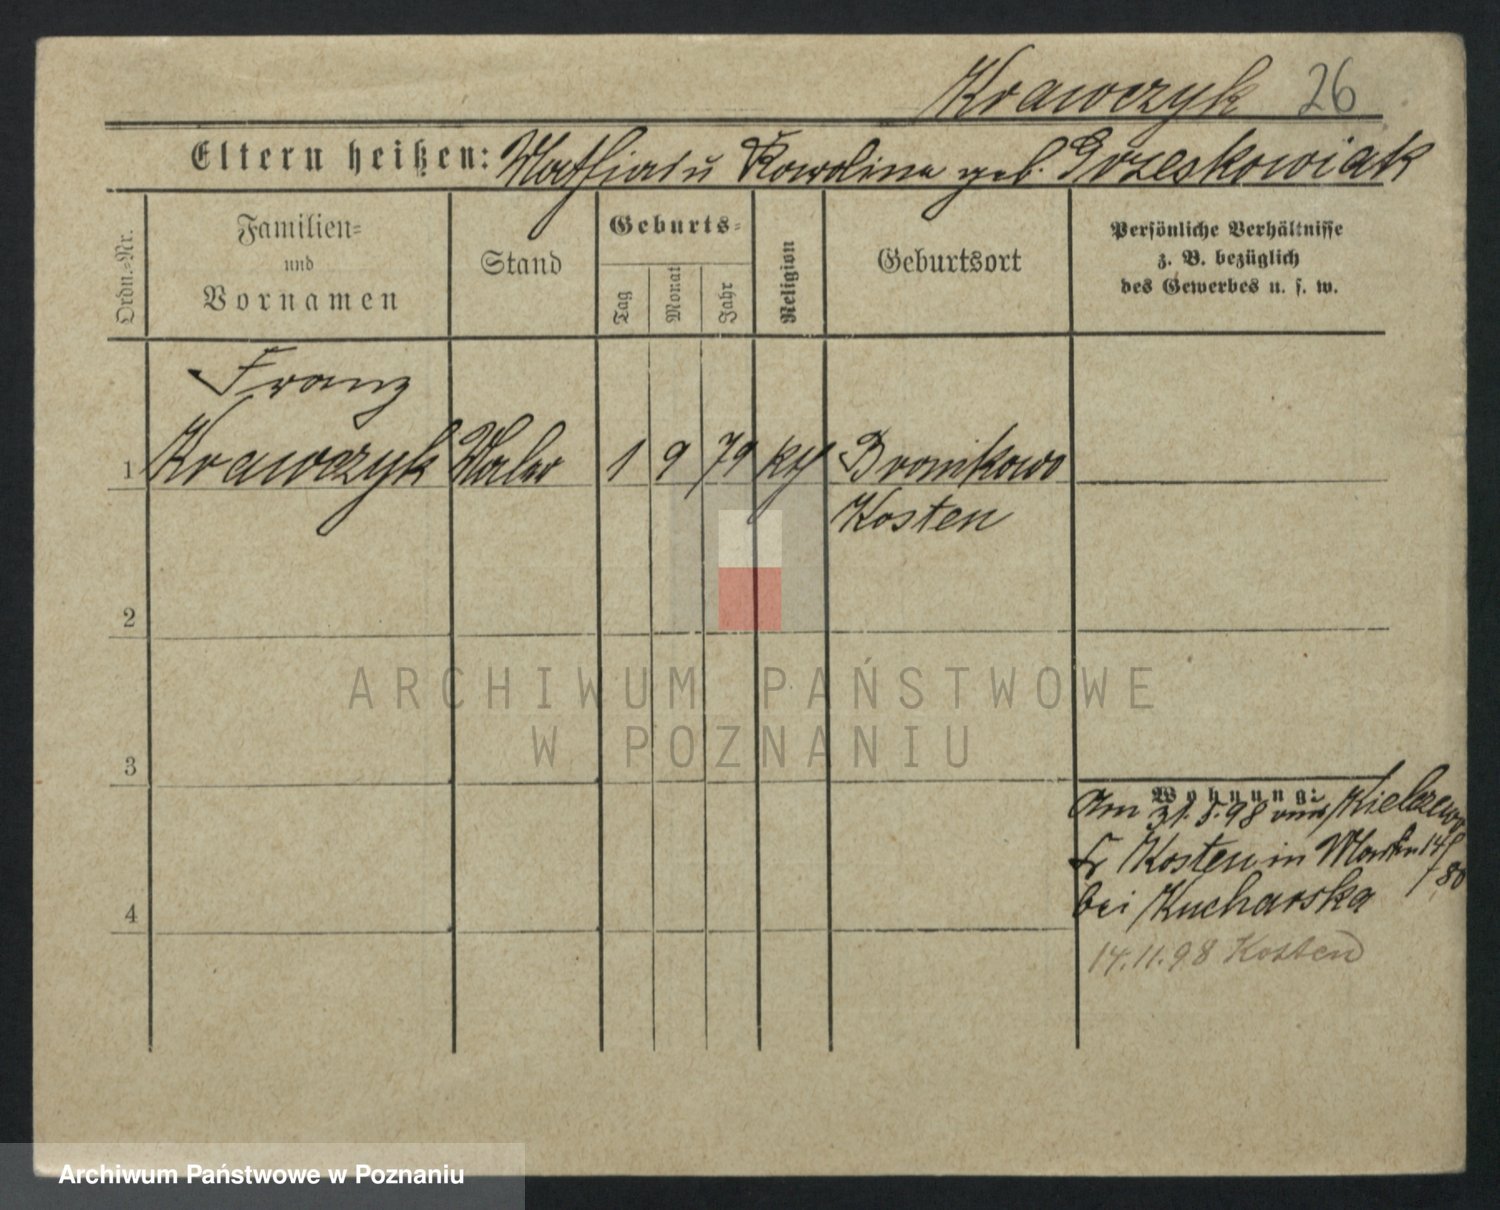 Krawczyk 26
Eltern heißen: Mathias u Karolina geb. Grzeskowiak
Ordn.=Nr.
Familien=
und
Vornamen
Stand
Geburts=
Tag
Monat
Jahr
Religion
Geburtsort
Persönliche Verhältnisse
z. B. bezüglich
des Gewerbes u. s. w.
Franz
1 Krawczyk Maler 1 9 79 kth Bronikowo
Kosten
2
ARCHIWUM PAŃSTWOWE
W POZNANIU
3
Wohnung:
Am 31.5.98 von Kielczewo
Kr Kosten in
bei Kucharska
4
14.11.98 Kosten
Archiwum Państwowe w Poznaniu